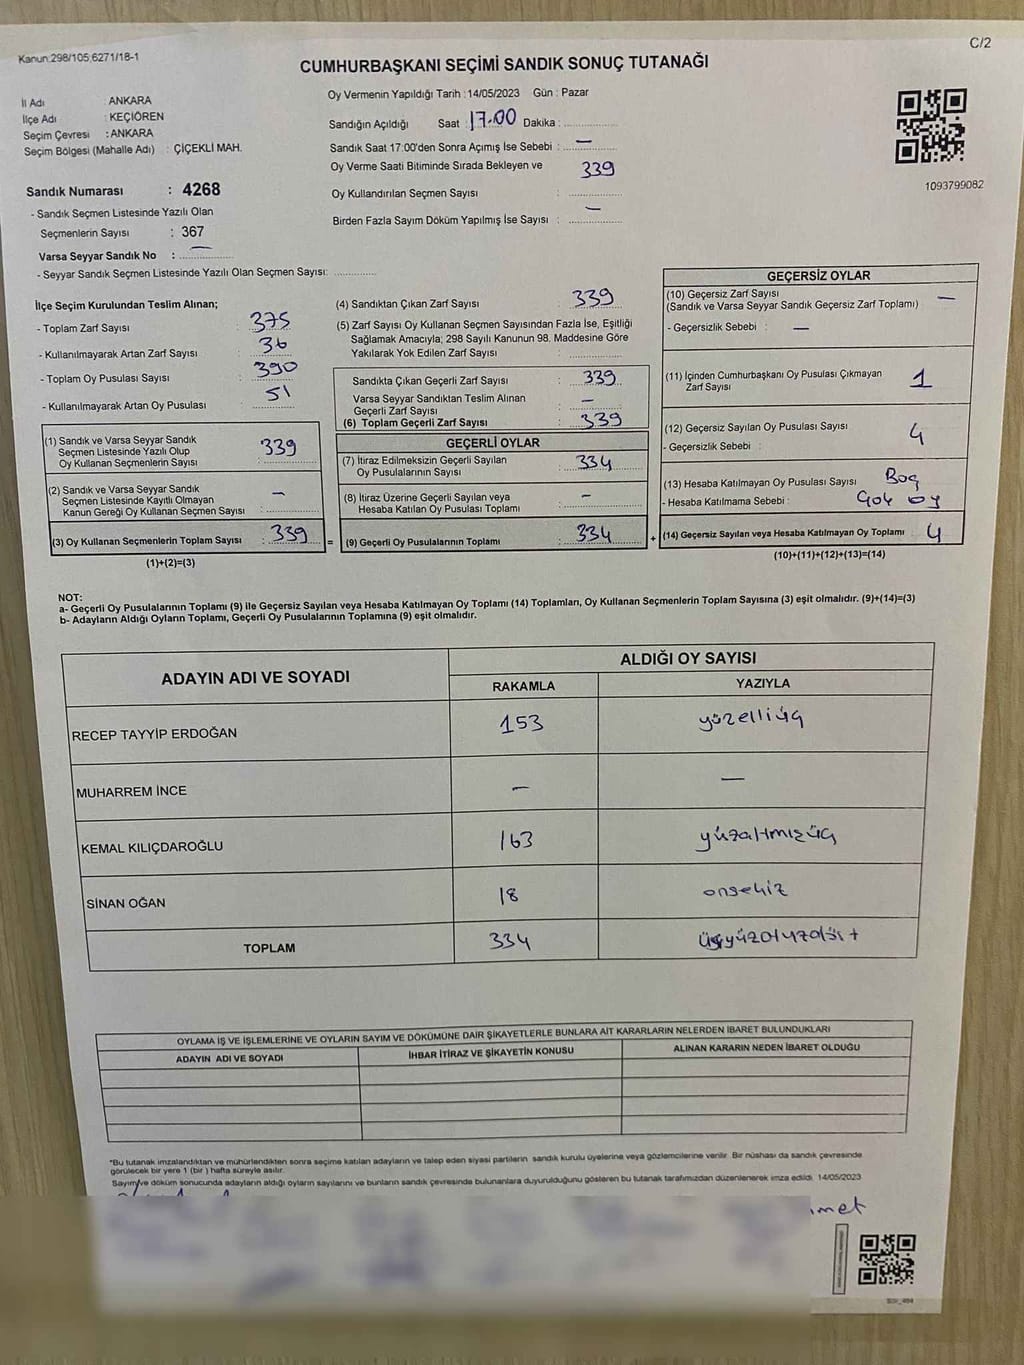 Kanun:298/105;6271/18-1
C/2
CUMHURBAŞKANI SEÇİMİ SANDIK SONUÇ TUTANAĞI
İl Adı : ANKARA
İlçe Adı : KEÇİÖREN
Seçim Çevresi : ANKARA
Seçim Bölgesi (Mahalle Adı) : ÇİÇEKLİ MAH.
Sandık Numarası : 4268
- Sandık Seçmen Listesinde Yazılı Olan
Seçmenlerin Sayısı : 367
Varsa Seyyar Sandık No : —
- Seyyar Sandık Seçmen Listesinde Yazılı Olan Seçmen Sayısı: ............
Oy Vermenin Yapıldığı Tarih : 14/05/2023 Gün : Pazar
Sandığın Açıldığı Saat : 17.00 Dakika : ............
Sandık Saat 17:00'den Sonra Açımış İse Sebebi : —
Oy Verme Saati Bitiminde Sırada Bekleyen ve 339
Oy Kullandırılan Seçmen Sayısı : ............
Birden Fazla Sayım Döküm Yapılmış İse Sayısı : —
1093799082
İlçe Seçim Kurulundan Teslim Alınan;
- Toplam Zarf Sayısı : 375
- Kullanılmayarak Artan Zarf Sayısı : 36
- Toplam Oy Pusulası Sayısı : 390
- Kullanılmayarak Artan Oy Pusulası : 51
(1) Sandık ve Varsa Seyyar Sandık
Seçmen Listesinde Yazılı Olup
Oy Kullanan Seçmenlerin Sayısı : 339
(2) Sandık ve Varsa Seyyar Sandık
Seçmen Listesinde Kayıtlı Olmayan
Kanun Gereği Oy Kullanan Seçmen Sayısı : —
(3) Oy Kullanan Seçmenlerin Toplam Sayısı : 339
(1)+(2)=(3)
=
(4) Sandıktan Çıkan Zarf Sayısı 339
(5) Zarf Sayısı Oy Kullanan Seçmen Sayısından Fazla İse, Eşitliği
Sağlamak Amacıyla; 298 Sayılı Kanunun 98. Maddesine Göre
Yakılarak Yok Edilen Zarf Sayısı : ............
Sandıkta Çıkan Geçerli Zarf Sayısı : 339
Varsa Seyyar Sandıktan Teslim Alınan
Geçerli Zarf Sayısı : —
(6) Toplam Geçerli Zarf Sayısı : 339
GEÇERLİ OYLAR
(7) İtiraz Edilmeksizin Geçerli Sayılan
Oy Pusulalarının Sayısı : 334
(8) İtiraz Üzerine Geçerli Sayılan veya
Hesaba Katılan Oy Pusulası Toplamı : —
(9) Geçerli Oy Pusulalarının Toplamı : 334
+
GEÇERSİZ OYLAR
(10) Geçersiz Zarf Sayısı
(Sandık ve Varsa Seyyar Sandık Geçersiz Zarf Toplamı) —
- Geçersizlik Sebebi : —
(11) İçinden Cumhurbaşkanı Oy Pusulası Çıkmayan
Zarf Sayısı 1
(12) Geçersiz Sayılan Oy Pusulası Sayısı 4
- Geçersizlik Sebebi :
(13) Hesaba Katılmayan Oy Pusulası Sayısı Boş
- Hesaba Katılmama Sebebi : Çok oy
(14) Geçersiz Sayılan veya Hesaba Katılmayan Oy Toplamı 4
(10)+(11)+(12)+(13)=(14)
NOT:
a- Geçerli Oy Pusulalarının Toplamı (9) ile Geçersiz Sayılan veya Hesaba Katılmayan Oy Toplamı (14) Toplamları, Oy Kullanan Seçmenlerin Toplam Sayısına (3) eşit olmalıdır. (9)+(14)=(3)
b- Adayların Aldığı Oyların Toplamı, Geçerli Oy Pusulalarının Toplamına (9) eşit olmalıdır.
ADAYIN ADI VE SOYADI
ALDIĞI OY SAYISI
RAKAMLA YAZIYLA
RECEP TAYYİP ERDOĞAN 153 yüzelliüç
MUHARREM İNCE — —
KEMAL KILIÇDAROĞLU 163 yüzaltmışüç
SİNAN OĞAN 18 onsekiz
TOPLAM 334 üçyüzotuzdört
OYLAMA İŞ VE İŞLEMLERİNE VE OYLARIN SAYIM VE DÖKÜMÜNE DAİR ŞİKAYETLERLE BUNLARA AİT KARARLARIN NELERDEN İBARET BULUNDUKLARI
ADAYIN ADI VE SOYADI İHBAR İTİRAZ VE ŞİKAYETİN KONUSU ALINAN KARARIN NEDEN İBARET OLDUĞU
*Bu tutanak imzalandıktan ve mühürlendikten sonra seçime katılan adayların ve talep eden siyasi partilerin sandık kurulu üyelerine veya gözlemcilerine verilir. Bir nüshası da sandık çevresinde
görülecek bir yere 1 (bir ) hafta süreyle asılır.
Sayım/ve döküm sonucunda adayların aldığı oyların sayılarını ve bunların sandık çevresinde bulunanlara duyurulduğunu gösteren bu tutanak tarafımızdan düzenlenerek imza edildi. 14/05/2023